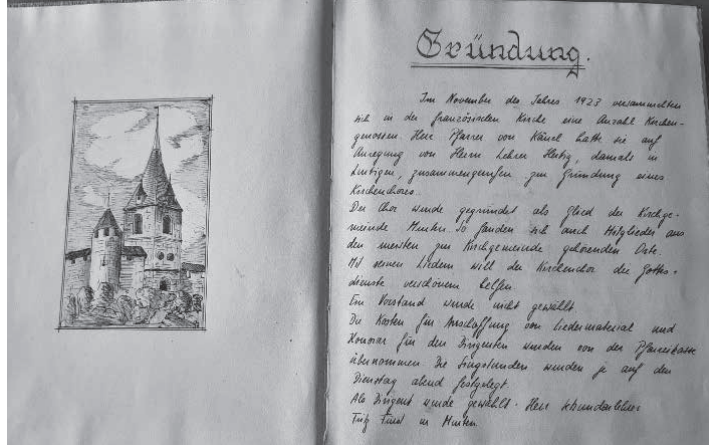 Gründung.
Im November des Jahres 1923 versammelten
sich in der französischen Kirche eine Anzahl Kirchen-
genossen. Herr Pfarrer von Känel hatte sie auf
Anregung von Herrn Lehrer Hertig, damals in
Lurtigen, zusammengerufen zur Gründung eines
Kirchenchores.
Der Chor wurde gegründet als Glied der Kirchge-
meinde Murten. So fanden sich auch Mitglieder aus
den meisten zur Kirchgemeinde gehörenden Orte.
Mit seinen Liedern will der Kirchenchor die Gottes-
dienste verschönern helfen.
Ein Vorstand wurde nicht gewählt.
Die Kosten für Anschaffung von Liedermaterial und
Honorar für den Dirigenten wurden von der Pfarreikasse
übernommen. Die Singstunden wurden je auf den
Dienstag abend festgelegt.
Als Dirigent wurde gewählt: Herr Sekundarlehrer
Fritz in Murten.